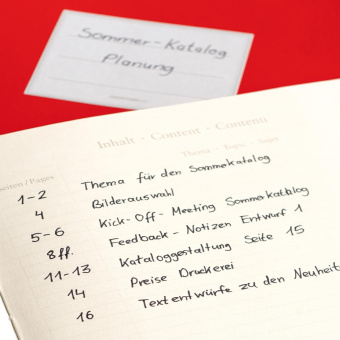 Sommer-Katalog
Planung
Inhalt · Content · Contenu
Seiten / Pages Thema · Topic · Sujet
1-2 Thema für den Sommerkatalog
4 Bilderauswahl
5-6 Kick-Off-Meeting Sommerkatalog
8ff. Feedback-Notizen Entwurf 1
11-13 Kataloggestaltung Seite 15
14 Preise Druckerei
16 Textentwürfe zu den Neuheit